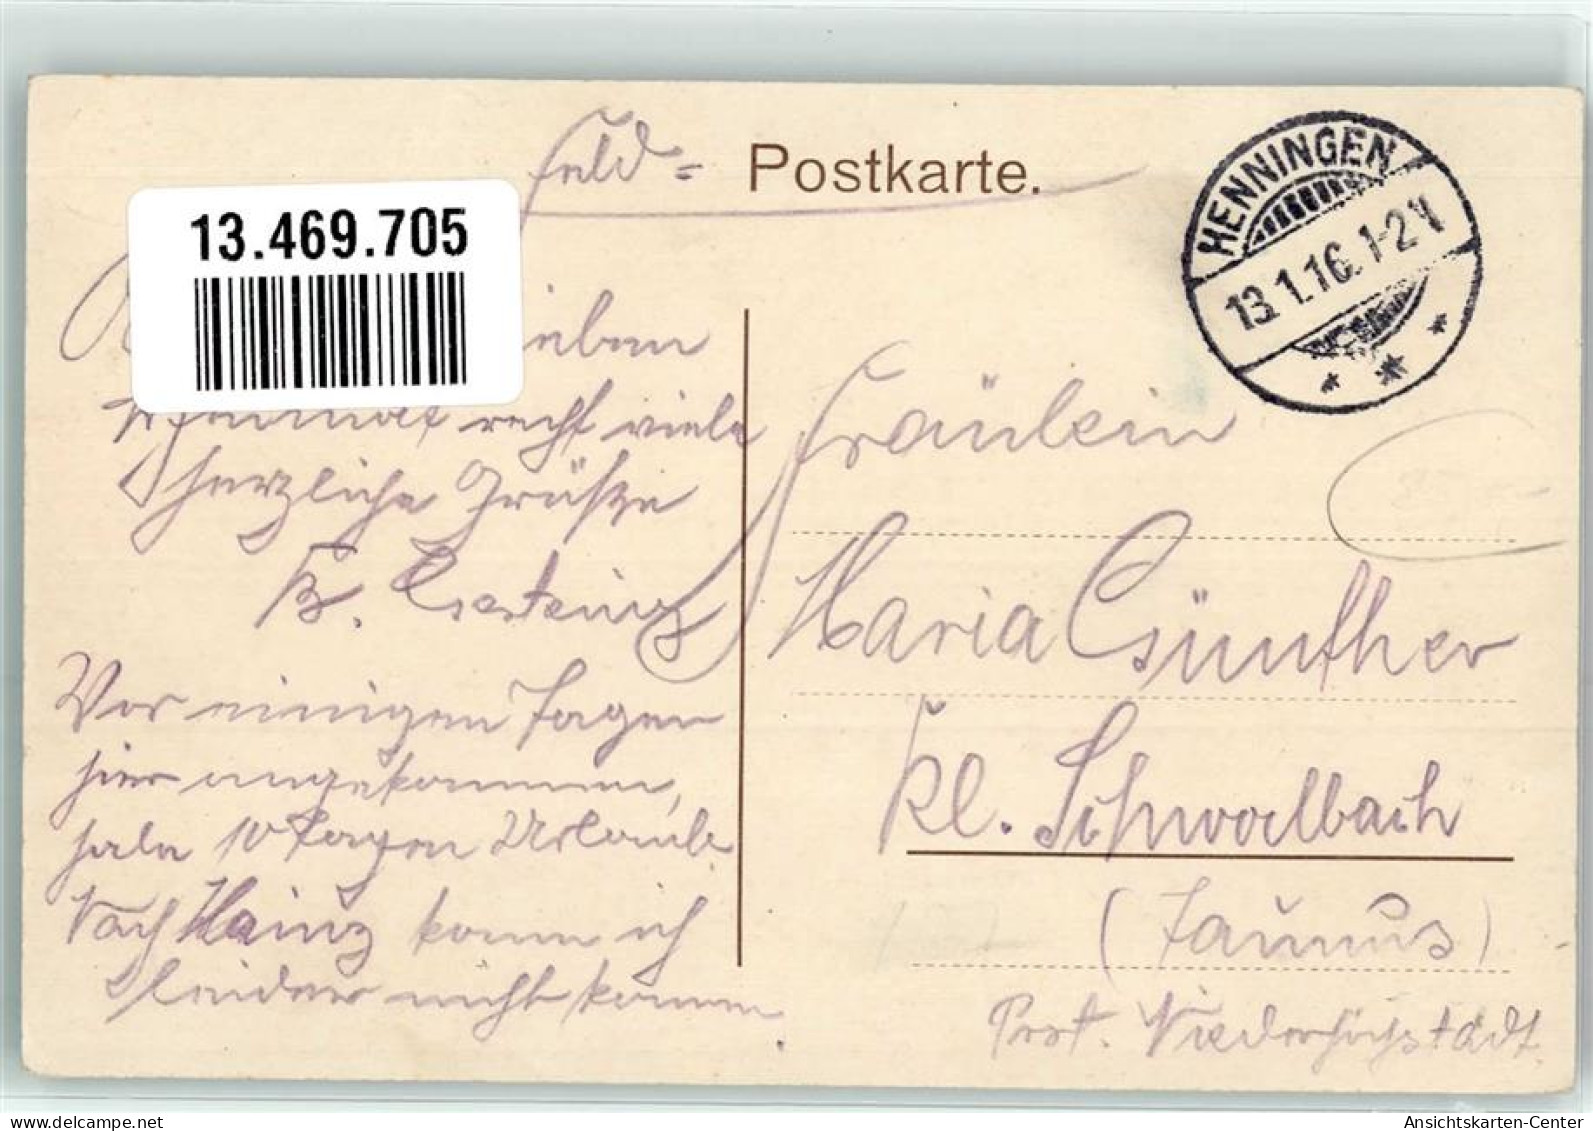 Feld-
Postkarte.
HENNINGEN
13.1.16. 1-2 N
13.469.705
recht viele
herzliche Grüße
Vor einigen Tagen
hier angekommen,
habe 10 Tagen Urlaub.
Nach Mainz komm ich
leider nicht kommen
Fräulein
Maria Günther
Kl. Schwalbach
(Taunus)
Post. Niederhöchstadt.
Ansichtskarten-Center